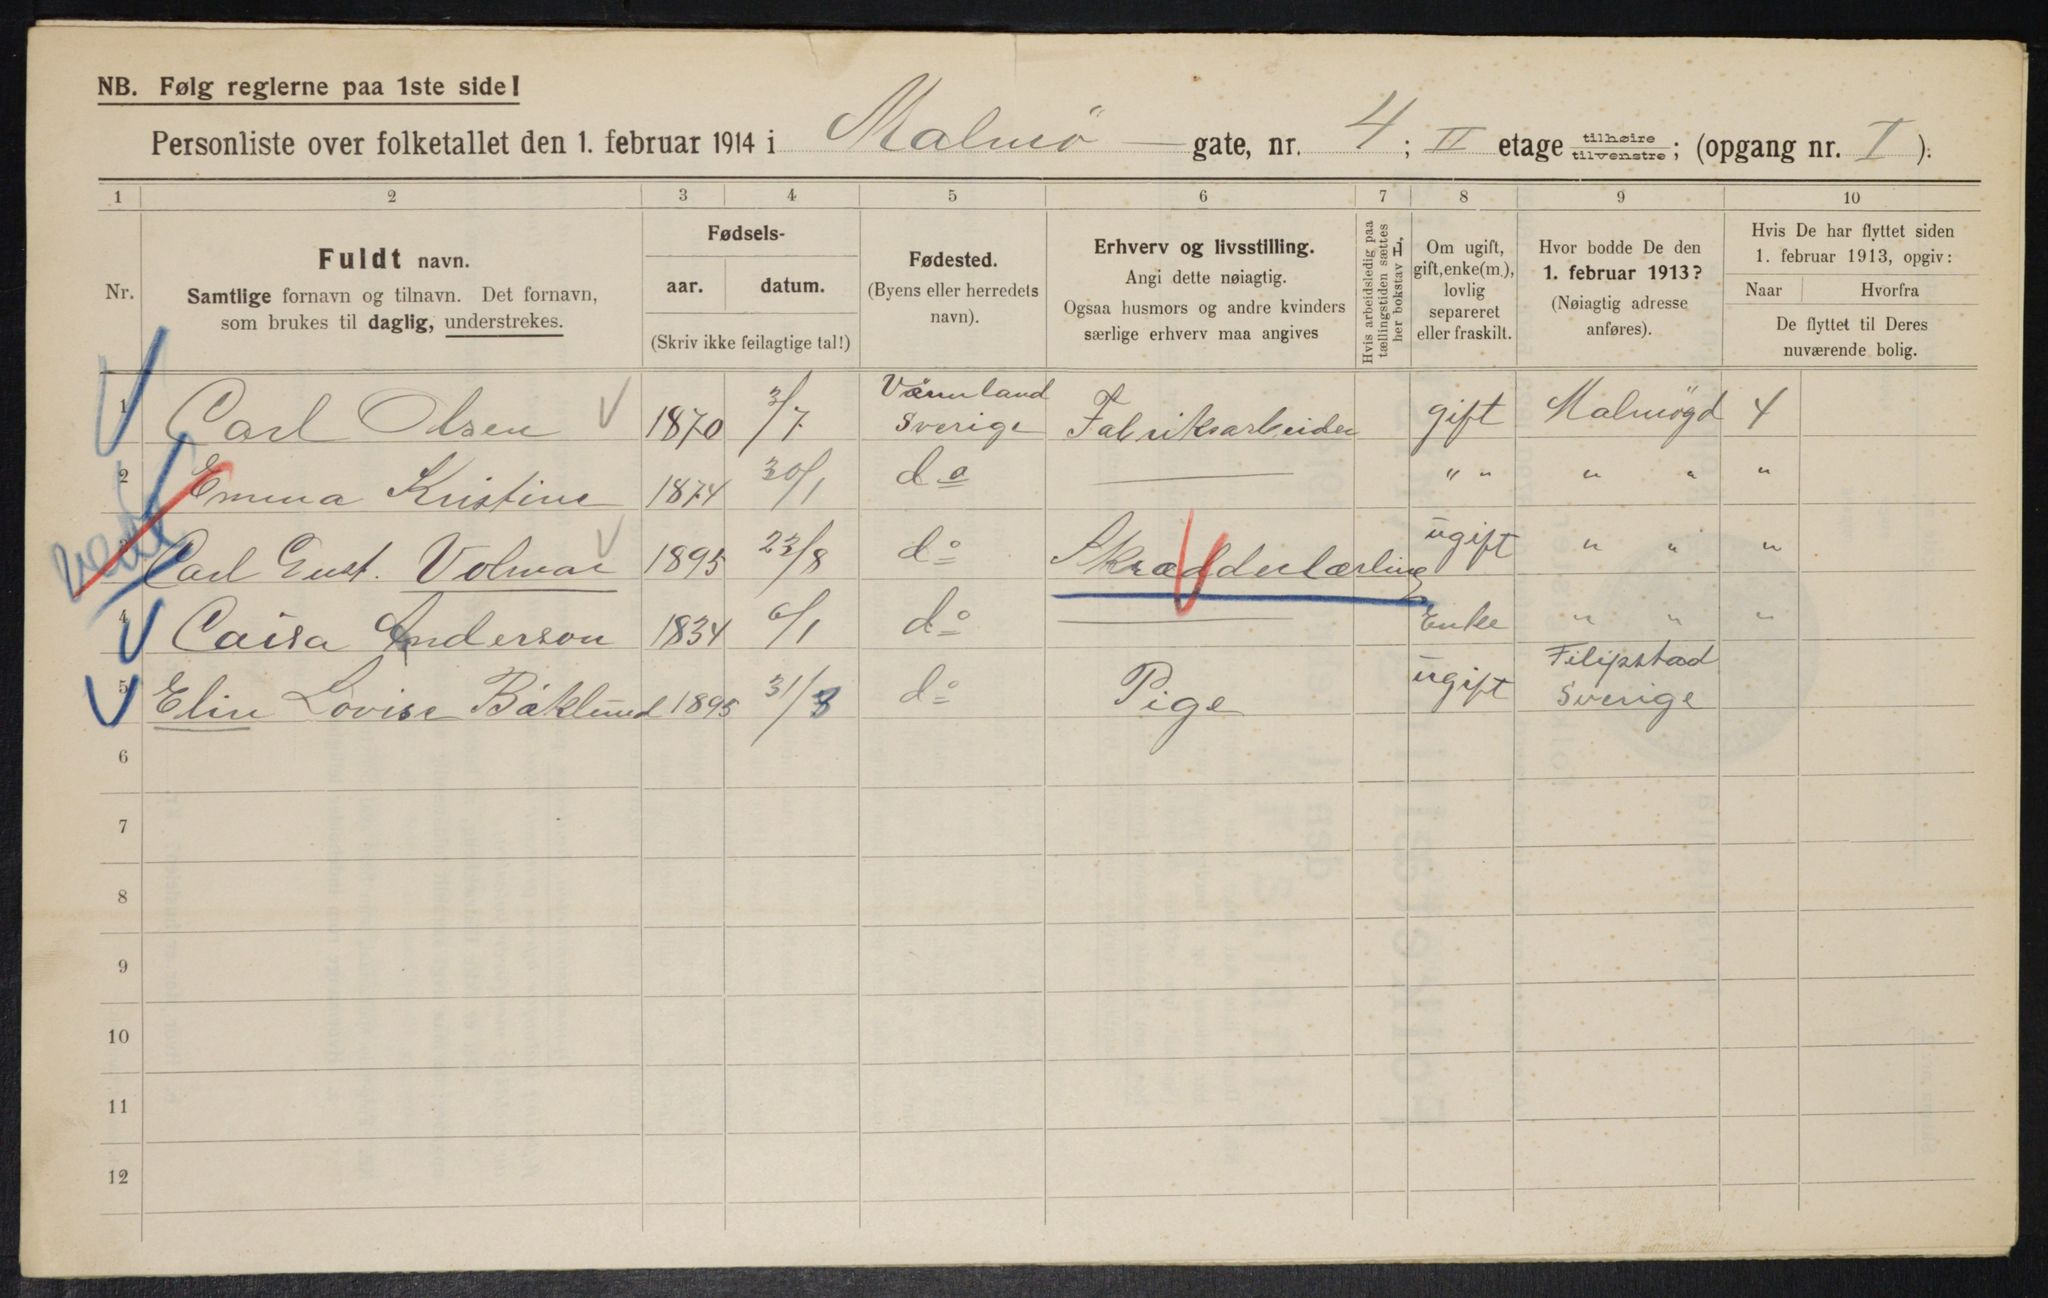 NB. Følg reglerne paa 1ste side!
Personliste over folketallet den 1. februar 1914 i Malmö — gate, nr. 4 ; II etage tilhøire / tilvenstre ; (opgang nr. I ).
1 2 3 4 5 6 7 8 9 10
Nr.
Fuldt navn.
Samtlige fornavn og tilnavn. Det fornavn,
som brukes til daglig, understrekes.
Fødsels-
aar. datum.
(Skriv ikke feilagtige tal!)
Fødested.
(Byens eller herredets
navn).
Erhverv og livsstilling.
Angi dette nøiagtig.
Ogsaa husmors og andre kvinders
særlige erhverv maa angives
Hvis arbeidsledig paa
tællingstiden sættes
her bokstav L.
Om ugift,
gift, enke(m.),
lovlig
separeret
eller fraskilt.
Hvor bodde De den
1. februar 1913?
(Nøiagtig adresse
anføres).
Hvis De har flyttet siden
1. februar 1913, opgiv:
Naar Hvorfra
De flyttet til Deres
nuværende bolig.
1 Carl Olsen 1870 3/7 Värmland Sverige Fabriksarbeider gift Malmögd 4
2 Emma Kristine 1874 30/1 do — " " " " "
3 Carl Gust. Volmar 1895 23/8 do Skrædderlærling ugift " " "
4 Caisa Anderson 1834 6/1 do — Enke " " "
5 Elin Lovise Bäklund 1895 31/3 do Pige ugift Filipstad Sverige
6
7
8
9
10
11
12